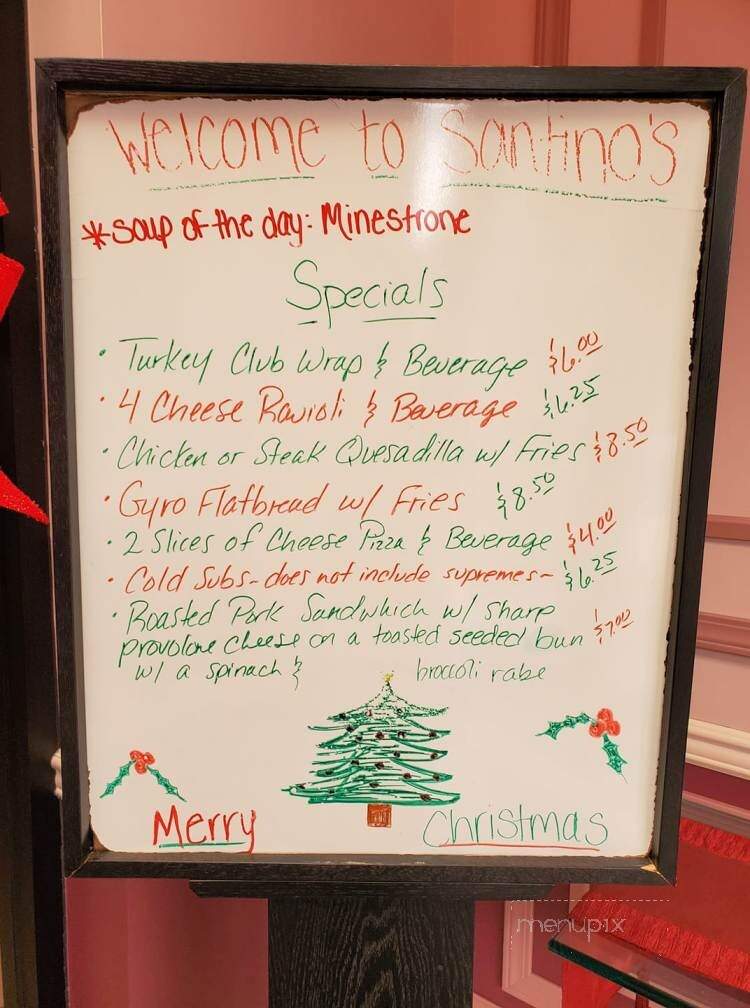 Welcome to Santino's
*Soup of the day: Minestrone
Specials
· Turkey Club Wrap & Beverage $6.00
· 4 Cheese Ravioli & Beverage $6.25
· Chicken or Steak Quesadilla w/ Fries $8.50
· Gyro Flatbread w/ Fries $8.50
· 2 Slices of Cheese Pizza & Beverage $4.00
· Cold Subs~does not include supremes~ $6.25
· Roasted Pork Sandwhich w/ sharp
provolone cheese on a toasted seeded bun $7.00
w/ a spinach & broccoli rabe
Merry Christmas
menupix